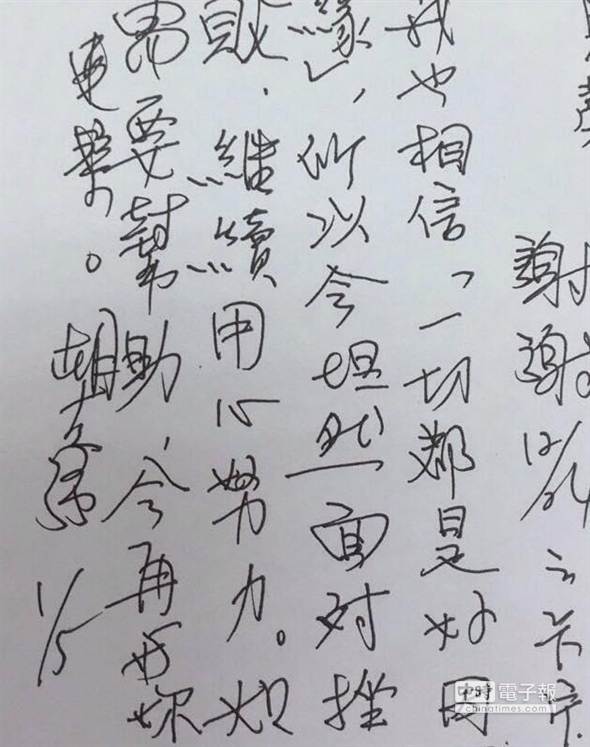 謝謝妳12/24之卡片
我也相信「一切都是好因
緣」,所以會坦然面對挫
敗、繼續用心努力。如
需要幫助,會再與妳
連繫。 胡志強 1/5
中時電子報
chinatimes.com